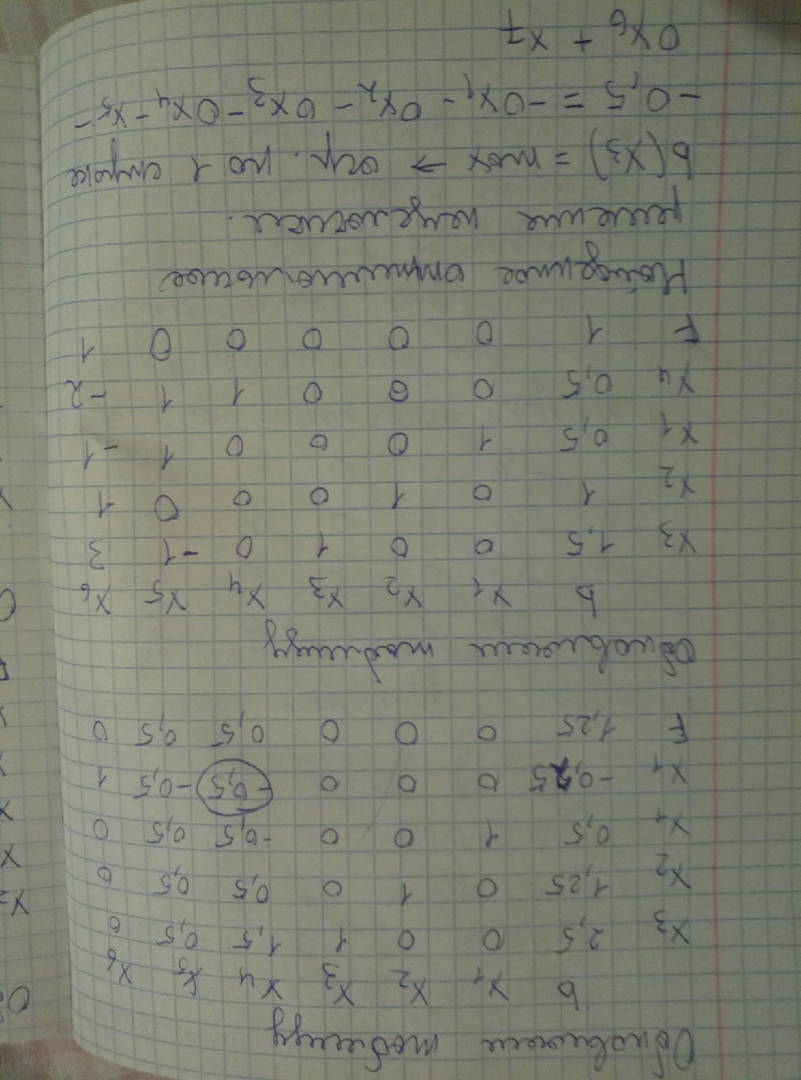 Обновляем таблицу
b x1 x2 x3 x4 x5 x6
x3 2,5 0 0 1 1,5 0,5 0
x2 1,25 0 1 0 0,5 0,5 0
x1 0,5 1 0 0 -0,5 0,5 0
x1 -0,25 0 0 0 -0,5 -0,5 1
F 1,25 0 0 0 0,5 0,5 0
Обновляем таблицу
b x1 x2 x3 x4 x5 x6
x3 1,5 0 0 1 0 -1 3
x2 1 0 1 0 0 0 1
x1 0,5 1 0 0 0 1 -1
x4 0,5 0 0 0 1 1 -2
F 1 0 0 0 0 0 1
Найденное оптимальное
решение нецелочисл.
b(x3) = max → огр. по 1 строке
-0,5 = -0x1 - 0x2 - 0x3 - 0x4 - x5 -
0x6 + x7